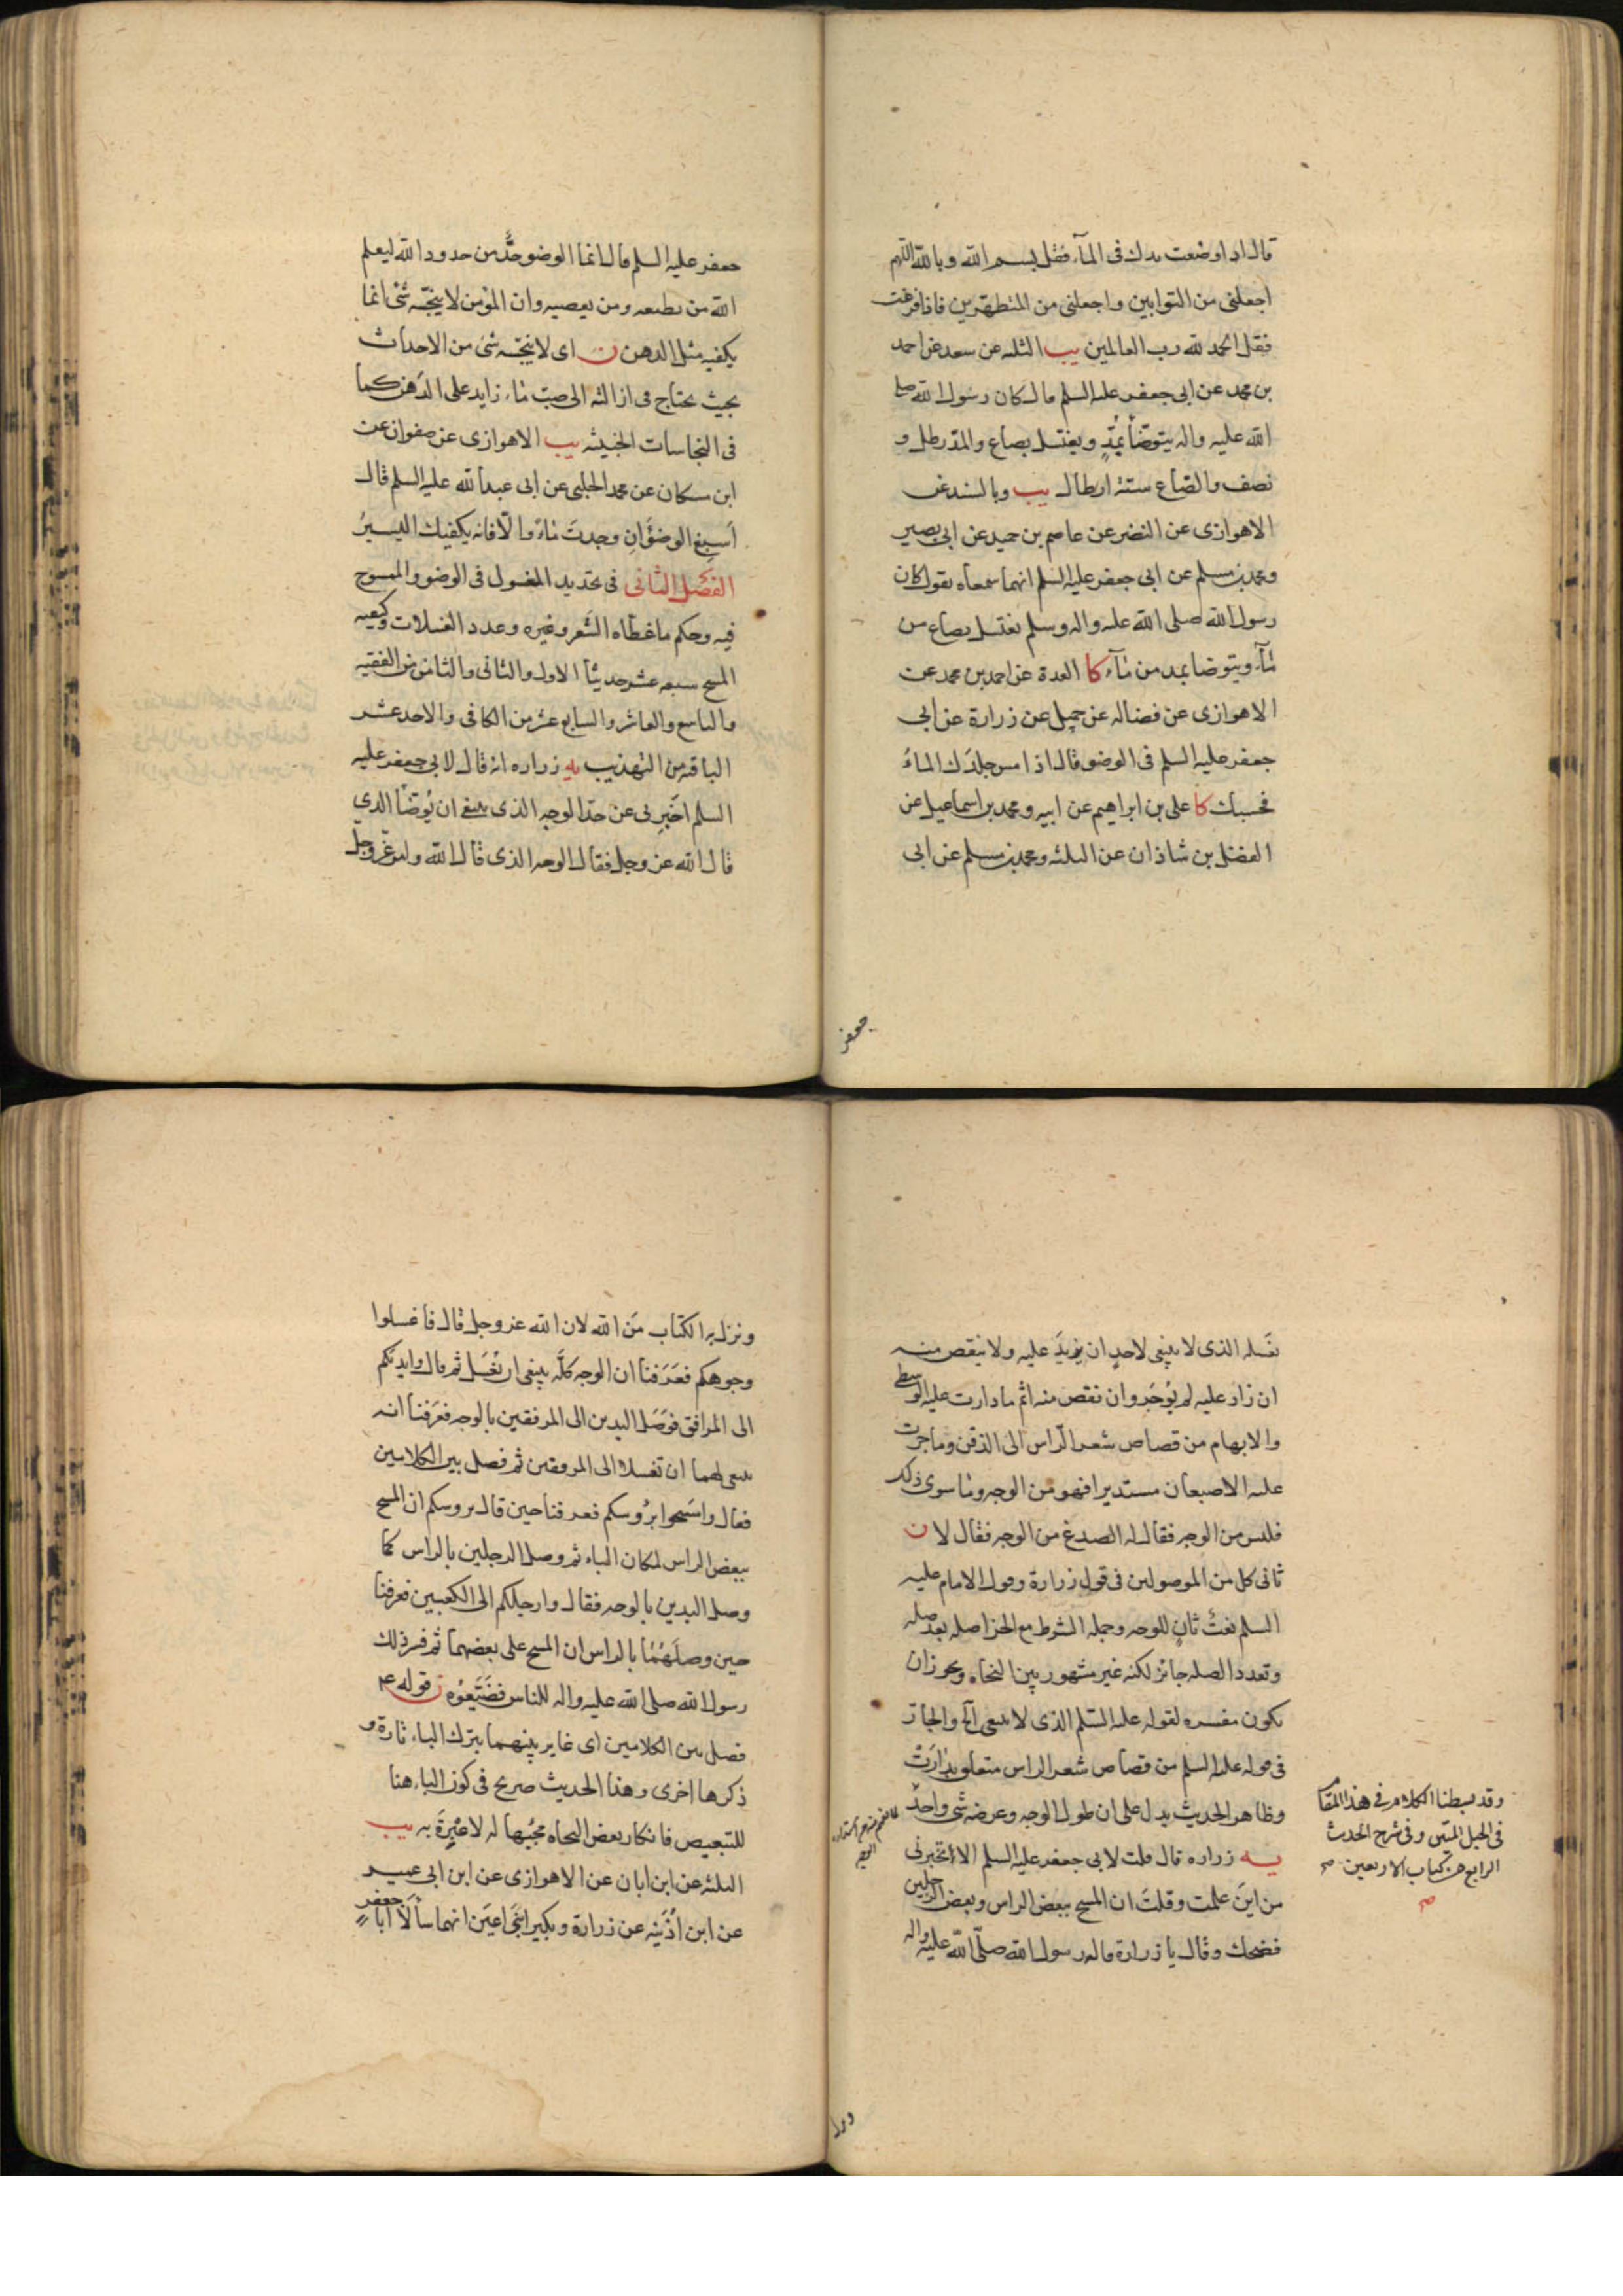 قال اذا وضعت يدك فى المآء فقل بسم الله وبالله اللهم
اجعلنى من التوابين واجعلنى من المتطهرين فاذا فرغت
فقل الحمد لله رب العالمين يب الثلثه عن سعد عن احمد
بن محمد عن ابى جعفر عليه السلم قال كان رسول الله صلى
الله عليه واله يتوضأ بمُدٍّ ويغتسل بصاع والمدّ رطل و
نصف والصاع ستة ارطال يب وبالسند عن
الاهوازى عن النضر عن عاصم بن حميد عن ابى بصير
ومحمد بن مسلم عن ابى جعفر عليه السلم انهما سمعاه يقول كان
رسول الله صلى الله عليه واله وسلم يغتسل بصاع من
مآء ويتوضا بمد من مآء كا العدة عن احمد بن محمد عن
الاهوازى عن فضاله عن جميل عن زرارة عن ابى
جعفر عليه السلم فى الوضو قال اذا مس جلدَك الماءُ
فحسبك كا على بن ابراهيم عن ابيه ومحمد بن اسماعيل عن
الفضل بن شاذان عن الثلثه ومحمد بن مسلم عن ابى
جعفر
جعفر عليه السلم قال انما الوضو حدٌّ من حدود الله ليعلم
الله من يطيعه ومن يعصيه وان المؤمن لا ينجّسه شئ انما
يكفيه مثل الدهن ن اى لا ينجّسه شئ من الاحداث
بحيث يحتاج فى ازالته الى صبّ ماء زايد على الدَهن كما
فى النجاسات الخبيثه يب الاهوازى عن صفوان عن
ابن مسكان عن محمد الحلبى عن ابى عبد الله عليه السلم قال
اَسبِغ الوضوَ اَن وجدتَ ماءً والّا فانه يكفيك اليسيرُ
الفصل الثانى فى تحديد المغسول فى الوضو والممسوح
فيه وحكم ما غطاه الشَعر وغيره وعدد الغسلات وكيفيه
المسح سبعه عشر حديثاً الاول والثانى والثامن من الفقيه
والتاسع والعاشر والسابع عشر من الكافى والاحد عشر
الباقيه من التهذيب يه زراره انه قال لابى جعفر عليه
السلم اخبِرنى عن حدّ الوجه الذى ينبغى ان يُوَضّأ الذى
قال الله عز وجل فقال الوجه الذى قال الله وامر عز وجل
بغَسله الذى لا ينبغى لاحدٍ ان يزيدَ عليه ولا ينقص منه
ان زاد عليه لم يُوجَر وان نقص منه اثم ما دارت عليه الوسطى
والابهام من قصاص شعر الرّاس الى الذقن وما جرت
عليه الاصبعان مستديرا فهو من الوجه وما سوى ذلك
فليس من الوجه فقال له الصدغ من الوجه فقال لا ن
ثانى كل من الموصولين فى قول زرارة وقول الامام عليه
السلم نعتٌ ثانٍ للوجه وجملة الشرط مع الجزا صله بعد صله
وتعدد الصله جائز لكنه غير مشهور بين النحاه ويجوز ان
يكون مفسره لقوله عليه السّلم الذى لا ينبغى الخ والجار
فى قوله عليه السلم من قصاص شعر الراس متعلق بدارَتْ
وظاهر الحديث يدل على ان طول الوجه وعرضه شئ واحد
يه زراره قال قلت لابى جعفر عليه السلم الا تُخبرنى
من اينَ علمت وقلتَ ان المسح ببعض الراس وبعض الرجلين
فضحك وقال يا زرارة قاله رسول الله صلّى الله عليه واله
وقد بسطنا الكلام فى هذا المقام
فى الحبل المتين وفى شرح الحديث
الرابع من كتاب الاربعين
ونزل
ونزل به الكتاب مَن الله لان الله عز وجل قال فاغسلوا
وجوهكم فعَرَفنا ان الوجه كلَّه ينبغى ان يُغسَل ثم قال وايديكم
الى المرافق فوَصَل اليدين الى المرفقين بالوجه فعَرفنا انه
ينبغى لهما ان تغسلا الى المرفقين ثم فصل بين الكلامين
فقال وامسَحوا برُوسكم فعرفنا حين قال بروسكم ان المسح
ببعض الراس لمكان الباء ثم وصل الرجلين بالراس كما
وصل اليدين بالوجه فقال وارجلكم الى الكعبين فعرفنا
حين وصلَهُمَا بالراس ان المسح على بعضهما ثم فسر ذلك
رسول الله صلى الله عليه واله للناس فضَيّعُوه ن قوله ع
فصل بين الكلامين اى غاير بينهما بترك الباء تارة و
ذكرها اخرى وهذا الحديث صريح فى كون الباء هنا
للتبعيض فانكار بعض النحاه مجيَها له لا عِبرةَ به يب
الثلثه عن ابن ابان عن الاهوازى عن ابن ابى عمير
عن ابن اُذَينه عن زرارة وبكير ابنَى اعيَن انهما سأَلا ابا جعفر